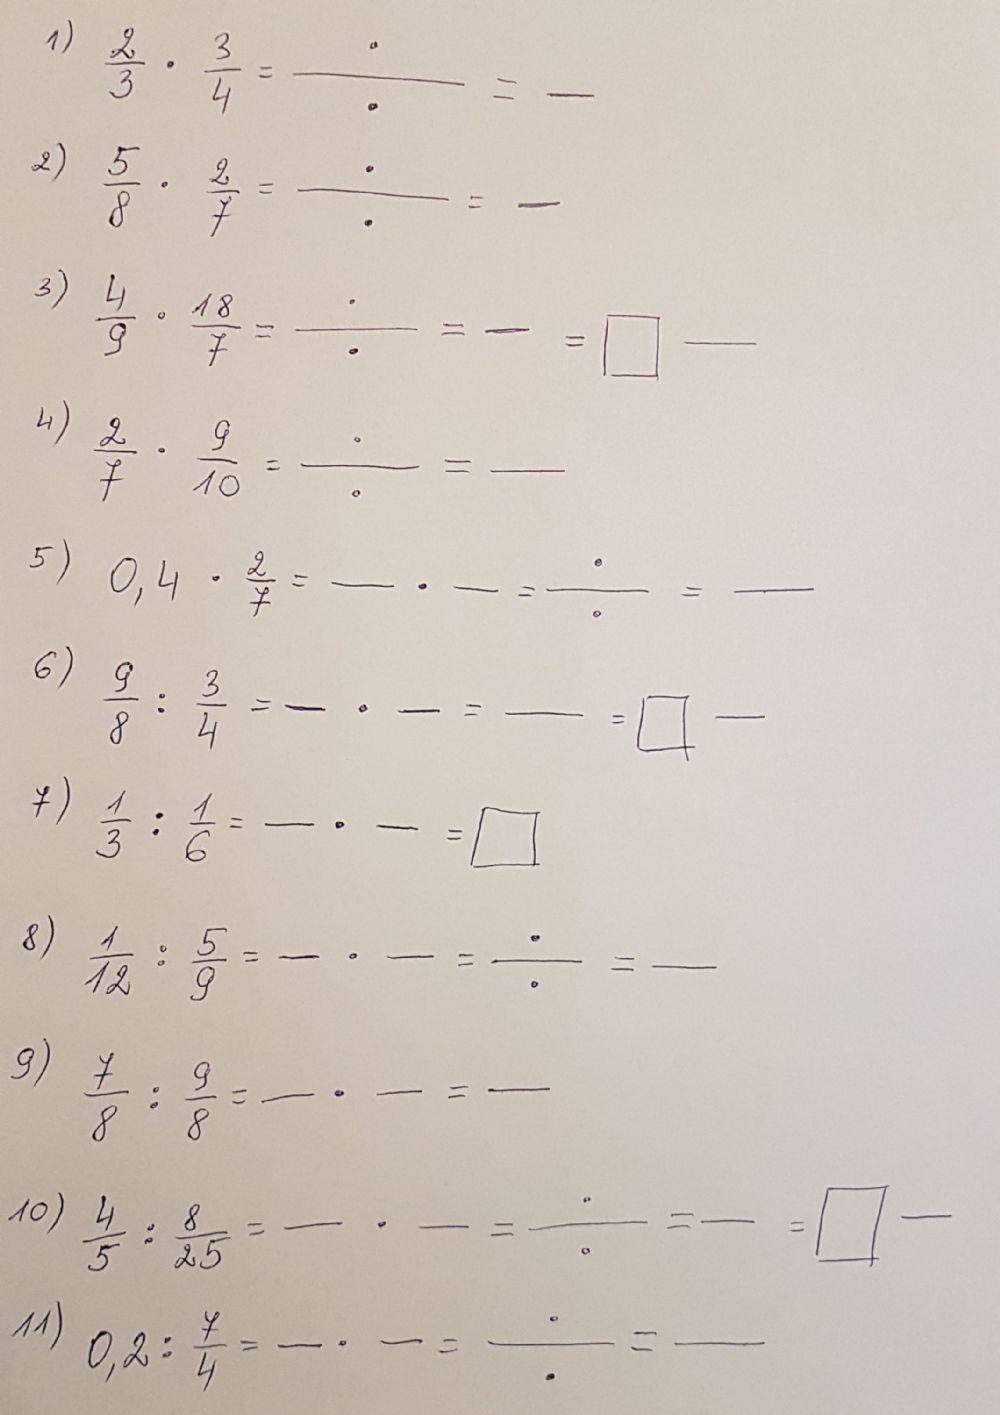 1) 2/3 · 3/4 = —·— = —
2) 5/8 · 2/7 = —·— = —
3) 4/9 · 18/7 = —·— = — = □ —
4) 2/7 · 9/10 = —·— = —
5) 0,4 · 2/7 = — · — = —·— = —
6) 9/8 : 3/4 = — · — = — = □ —
7) 1/3 : 1/6 = — · — = □
8) 1/12 : 5/9 = — · — = —·— = —
9) 7/8 : 9/8 = — · — = —
10) 4/5 : 8/25 = — · — = —·— = — = □ —
11) 0,2 : 7/4 = — · — = —·— = —